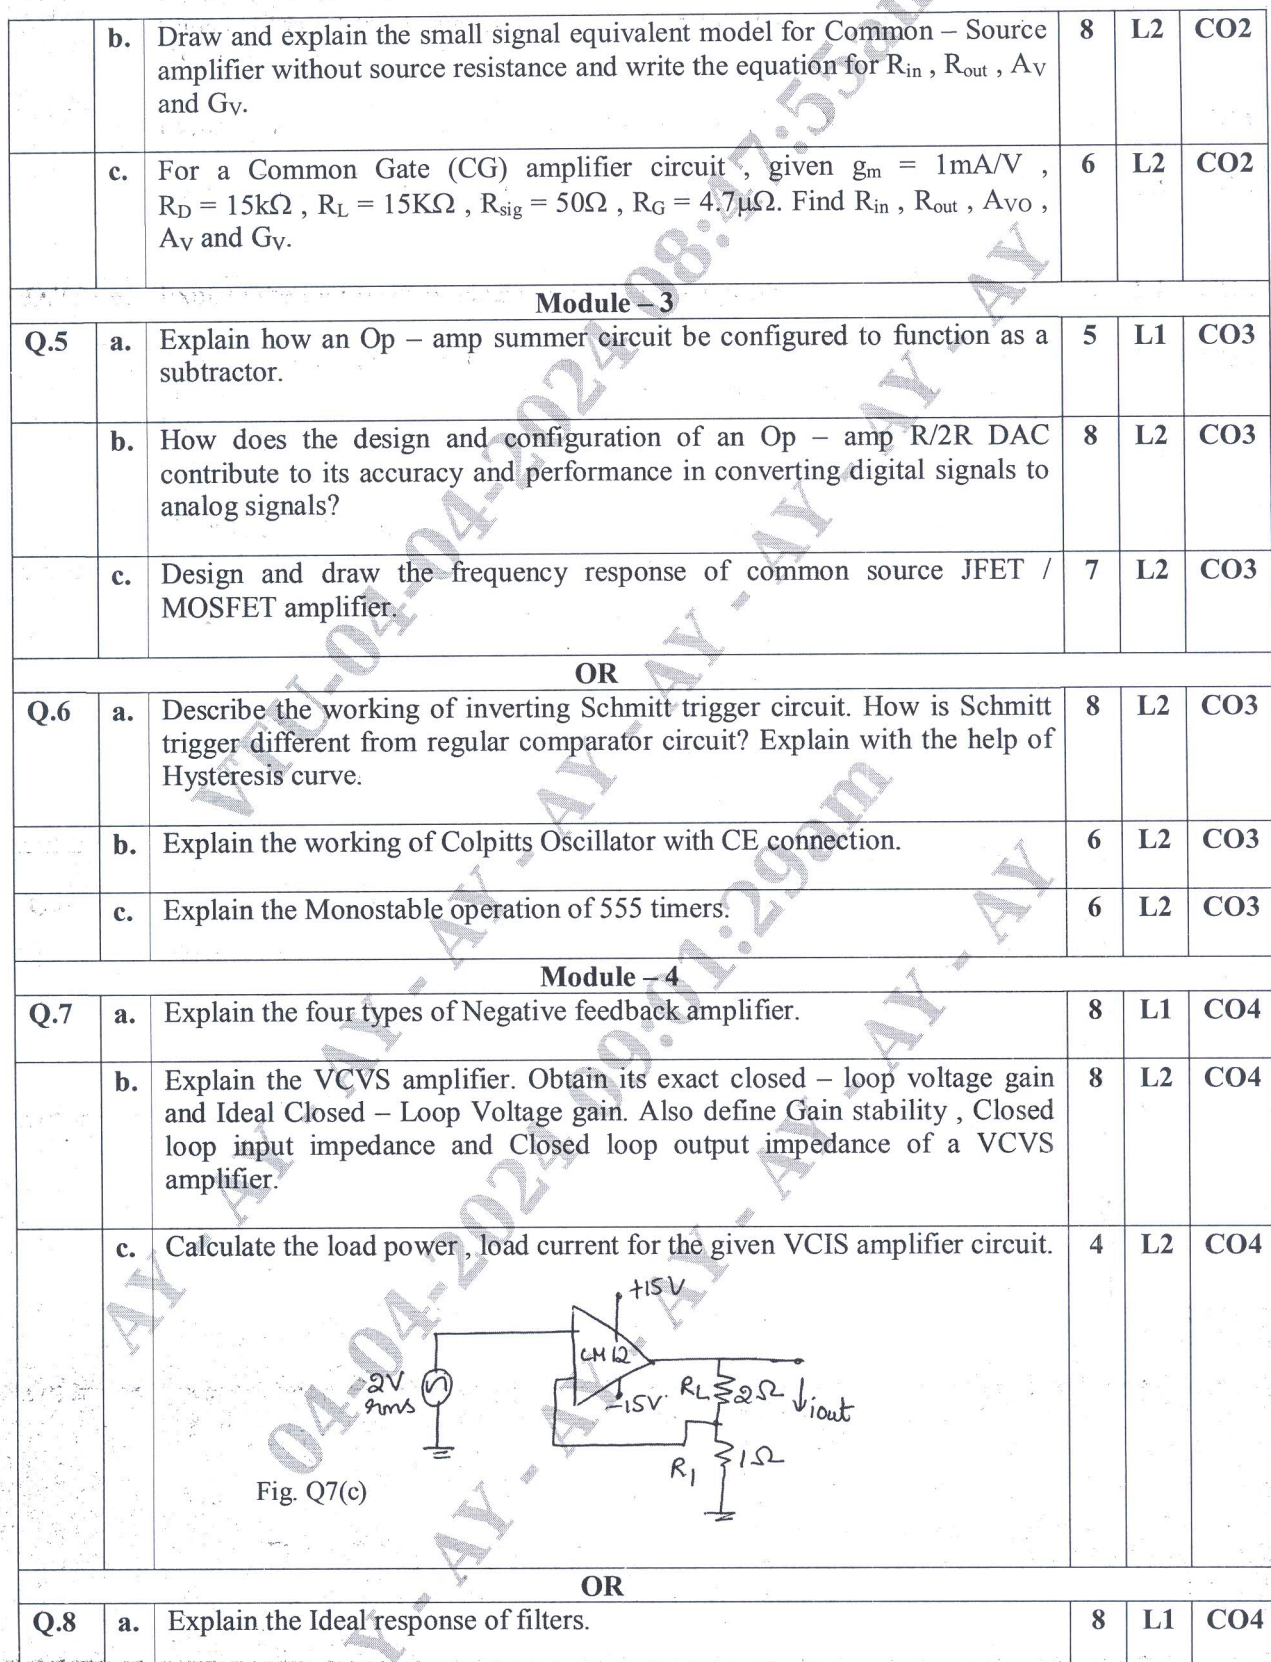 b. Draw and explain the small signal equivalent model for Common – Source 8 L2 CO2
amplifier without source resistance and write the equation for Rin , Rout , AV
and GV.
c. For a Common Gate (CG) amplifier circuit , given gm = 1mA/V , 6 L2 CO2
RD = 15kΩ , RL = 15KΩ , Rsig = 50Ω , RG = 4.7μΩ. Find Rin , Rout , AVO ,
AV and GV.
Module – 3
Q.5 a. Explain how an Op – amp summer circuit be configured to function as a 5 L1 CO3
subtractor.
b. How does the design and configuration of an Op – amp R/2R DAC 8 L2 CO3
contribute to its accuracy and performance in converting digital signals to
analog signals?
c. Design and draw the frequency response of common source JFET / 7 L2 CO3
MOSFET amplifier.
OR
Q.6 a. Describe the working of inverting Schmitt trigger circuit. How is Schmitt 8 L2 CO3
trigger different from regular comparator circuit? Explain with the help of
Hysteresis curve.
b. Explain the working of Colpitts Oscillator with CE connection. 6 L2 CO3
c. Explain the Monostable operation of 555 timers. 6 L2 CO3
Module – 4
Q.7 a. Explain the four types of Negative feedback amplifier. 8 L1 CO4
b. Explain the VCVS amplifier. Obtain its exact closed – loop voltage gain 8 L2 CO4
and Ideal Closed – Loop Voltage gain. Also define Gain stability , Closed
loop input impedance and Closed loop output impedance of a VCVS
amplifier.
c. Calculate the load power , load current for the given VCIS amplifier circuit. 4 L2 CO4
+15V
LM12
2V
rms
-15V
RL 2Ω
iout
R1 1Ω
Fig. Q7(c)
OR
Q.8 a. Explain the Ideal response of filters. 8 L1 CO4
VTU-04-04-2024 08:47:55am
AY - AY - AY - AY - AY - AY - AY
04-04-2024 09:01:29am
AY - AY - AY - AY - AY